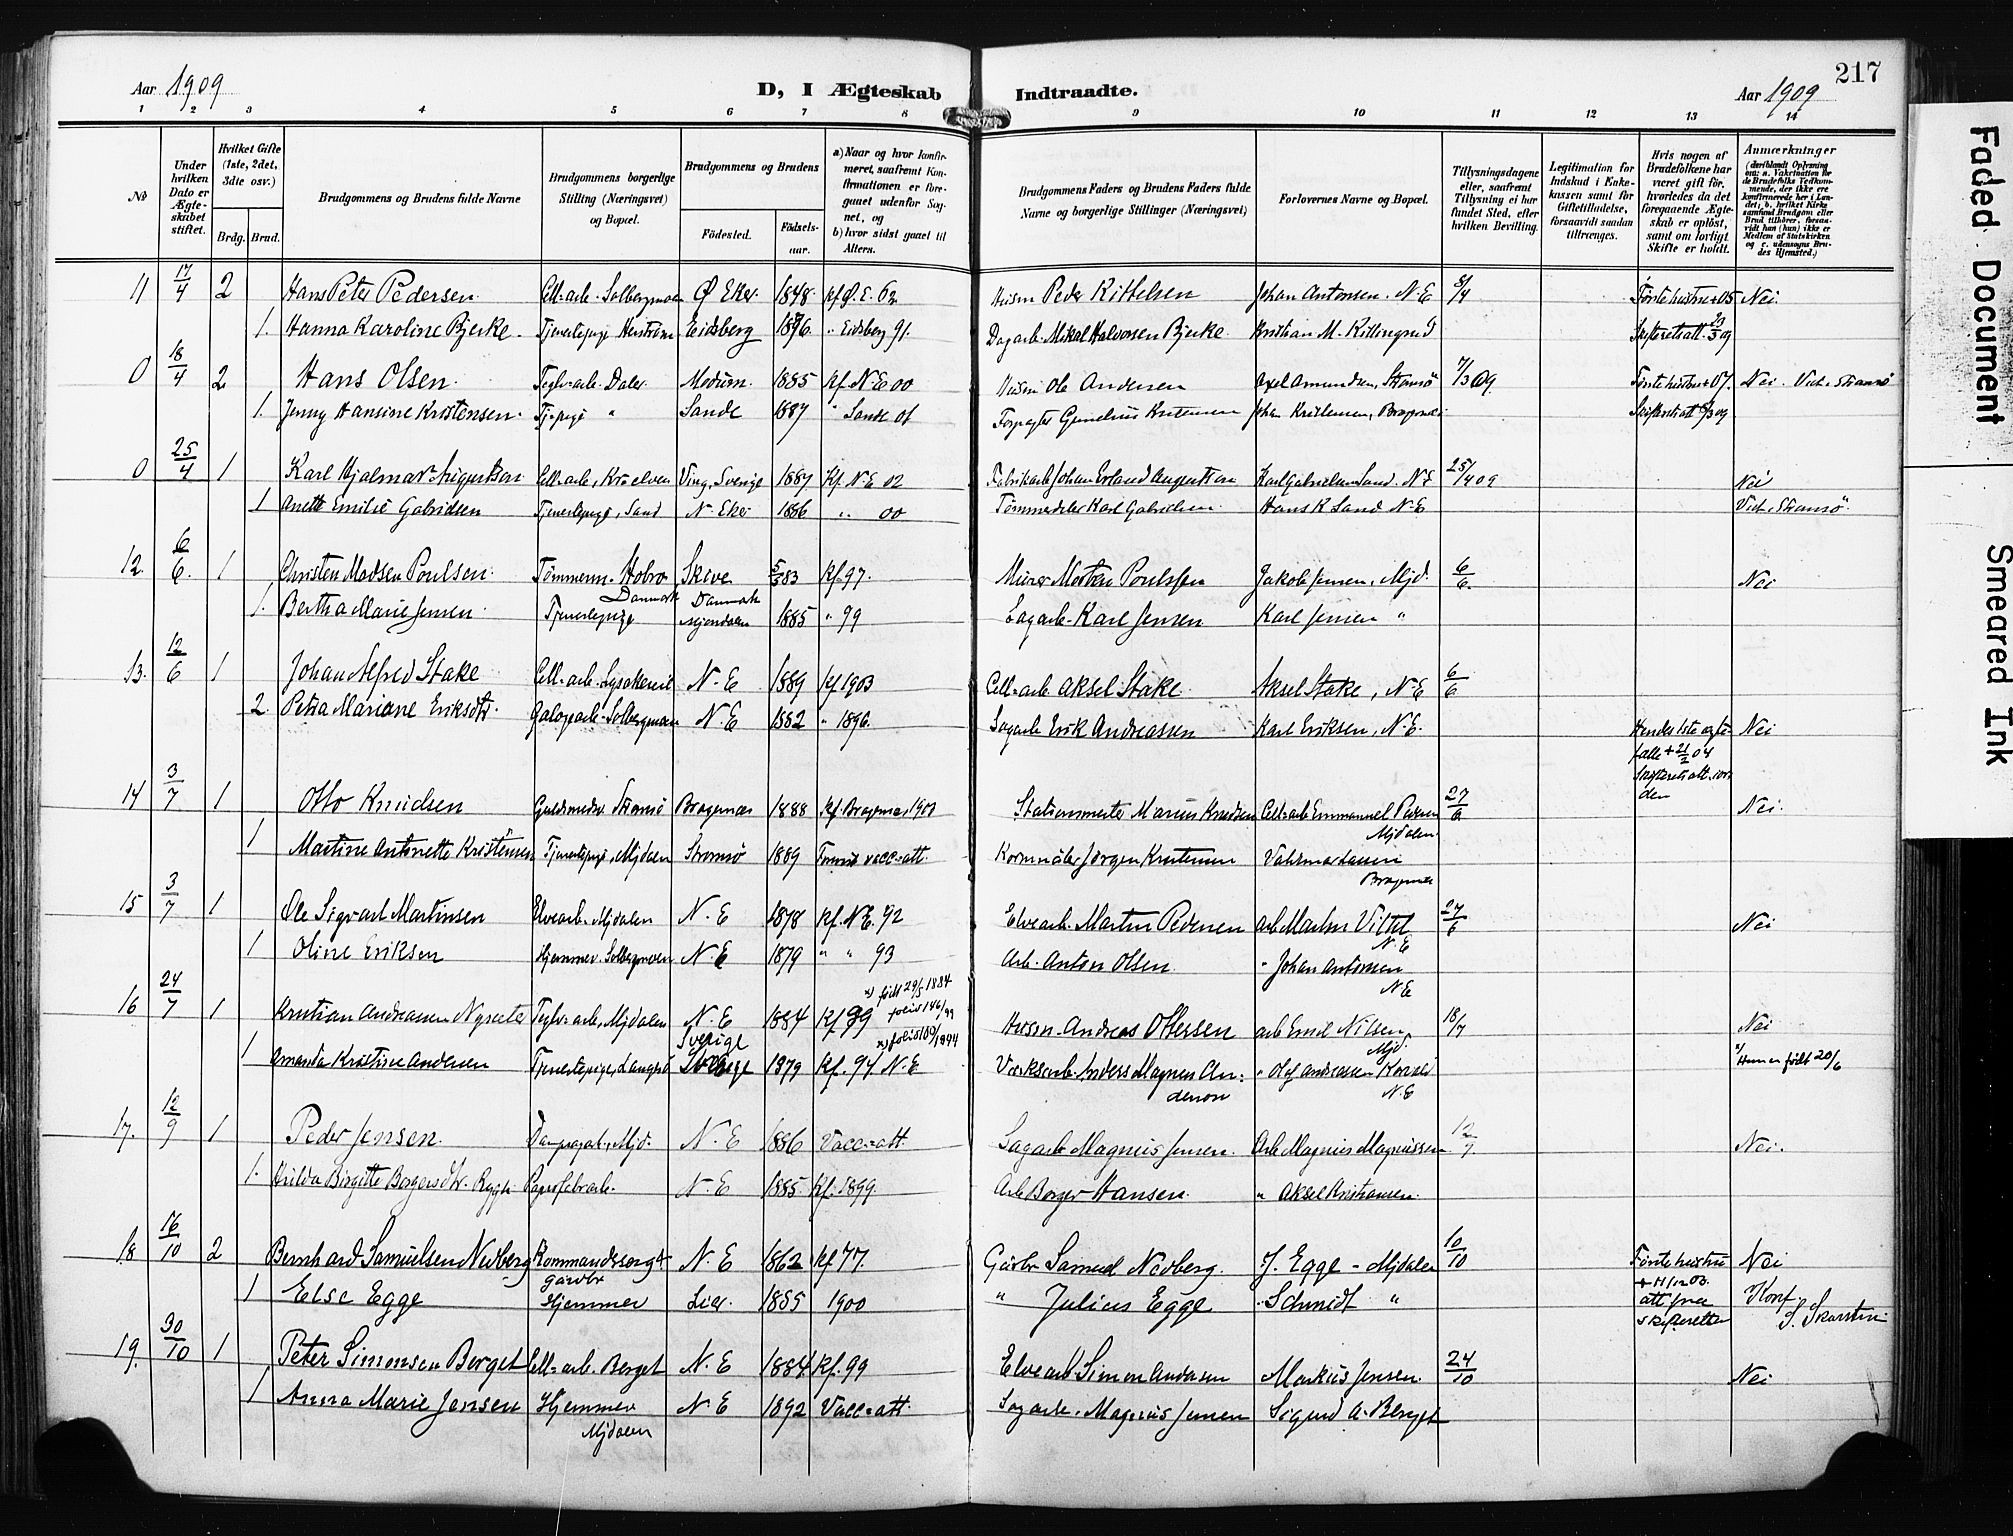 217
Aar 1909
D, I Ægteskab Indtraadte.
Aar 1909
1 2 3 4 5 6 7 8 9 10 11 12 13 14
No
Under hvilken Dato er Ægteskabet stiftet.
Hvilket Gifte (1ste, 2det, 3die osv.)
Brdg. Brud.
Brudgommens og Brudens fulde Navne
Brudgommens borgerlige Stilling (Næringsvei) og Bopæl.
Brudgommens og Brudens
Fødested.
Fødselsaar.
a) Naar og hvor konfirmeret, saafremt Konfirmationen er foregaaet udenfor Sognet, og b) hvor sidst gaaet til Alters.
Brudgommens Faders og Brudens Faders fulde Navne og borgerlige Stillinger (Næringsvei)
Forlovernes Navne og Bopæl.
Tillysningsdagene eller, saafremt Tillysning ei har fundet Sted, efter hvilken Bevilling.
Legitimation for Indskud i Enkekassen samt for Giftetilladelse, forsaavidt saadan tiltrænges.
Hvis nogen af Brudefolkene har været gift før, hvorledes da det foregaaende Ægteskab er opløst, samt om lovligt Skifte er holdt.
Anmærkninger
11 17/4 2 Hans Peter Pedersen Cell-arb. Solbergmoen Ø Eker 1848 kf. Ø. E. 62 Husm Peder Kittelsen Johan Antonsen. N.E 5/4 Første hustru + 05 Nei
1. Hanna Karoline Bjerke Tjenestepige Eidsberg 1876 " Eidsberg 91. Dagarb. Mikal Halvorsen Bjerke Kristian M. Killingrud Skifteretsatt.
0 18/4 2 Hans Olsen Teglv-arb. Modum 1885 kf. N.E 00 Husm Ole Andersen Axel Amundsen, Strømsø 7/3 09 Første hustru + 07. Nei. Vict. Strømsø
1. Jenny Hansine Kristensen Tj-pige " Sande 1887 " Sande 01 Forpagter Johan Kristensen, Bragernes
0 25/4 1 Karl Hjalmar Augustson Cell-arb. Sverige 1887 kf. N.E 02 Fabrikarb. Johan Erland Augustson Karl Gabrielsen Sand. N.E 25/4 09 Nei
1 Anette Emilie Gabrielsen Tjenestepige, Sand N. Eker 1886 " 00 Karl Gabrielsen Hans K Sand N-E Vict. Strømsø.
12. 6/6. 1 Christen Madsen Poulsen Tømmerm. Hobro Danmark Skive Danmark 5/3 83 kf. 97. Murer Morten Poulsen Jakob Jensen, Mjd. 6/6. Nei
1. Bertha Marie Jensen Tjenestepige Mjøndalen 1885 " 99 Sagarb. Karl Jensen Karl Jensen "
13. 12/6 1 Johan Alfred Stake Cell-arb. N.E 1889 kf 1903 Cell-arb Aksel Stake Aksel Stake, N.E 6/6
2. Petra Mariane Eriksdtr. Solbergmoen N.E 1882 " 1896. Sagarb Erik Andreassen Karl Eriksen, N.E. Hendes 1ste ægtefælle + 21/2 04 Nei
14 3/7 1 Otto Knudsen Guldsmedsv. Strømsø Bragernæs 1888 kf. Bragernæs 1903 Stationsmester Marius Knudsen Cell-arb Emmanuel Pedersen Mjdalen. 27/6 Nei.
1 Martine Antonette Kristensen Tjenestepige, Mjdalen Strømsø 1889 vacc-att. Kornmåler Jørgen Kristensen Valdemar Lassen Bragernes
15 3/7 1 Ole Sigvart Martinsen Elvearb. Mjdalen N.E 1878 kf. N.E. 92 Elvearb. Martin Pedersen arb. Martin N.E 27/6 Nei
1 Oline Eriksen Hjemmev. Solbergmoen N.E 1879 " " 93 Arb. Anton Olsen " Johan Antonsen N.E
16 24/7 1 Kristian Andreassen Teglv-arb, Mjdalen N.E 1884 kf 99 x) født 29/5 1884 folio 146/99 Husm. Andreas Ottersen arb Emil Nilsen, Mjd. 18/7 Nei
1 Amanda Kristine Andersen Tjenestepige, Sverige 1879 kf. 94. N.E Værksarb. Anders Magnus Anderson " Olaf Andreassen N.E x) Hun er født 20/6
17. 12/9 1 Peder Jensen Mjd. N.E 1886 Vacc-att. Sagarb. Magnus Jensen Arb Magnus Magnussen 12/9 Nei.
1. Hilda Birgitte Borgersdtr. Rygh Papirfabrarb. N.E 1885 kf. 1899. Arb Borger Hansen " Aksel Kristiansen
18 16/10 2 Bernhard Samuelsen Nedberg Kommandersergt gårdbr N.E 1862 kf 77. Gårdbr Samuel Nedberg J. Egge - Mjdalen 10/10 Første hustru att fra skifteretten Nei
1 Else Egge Hjemmev Lier. 1885 1900 " Julius Egge Schmidt " Konf. S. Skarstin
19. 30/10 1 Peter Simensen Berget Cell-arb. Berget N.E 1884 kf. 99 Elvearb Simen Andersen Markus Jensen 24/10 Nei
1 Anna Marie Jensen Hjemmev Mjdalen N.E 1892 Vacc-att. Sagarb. Magnus Jensen Sigurd A. Berget
Faded Document
Smeared Ink